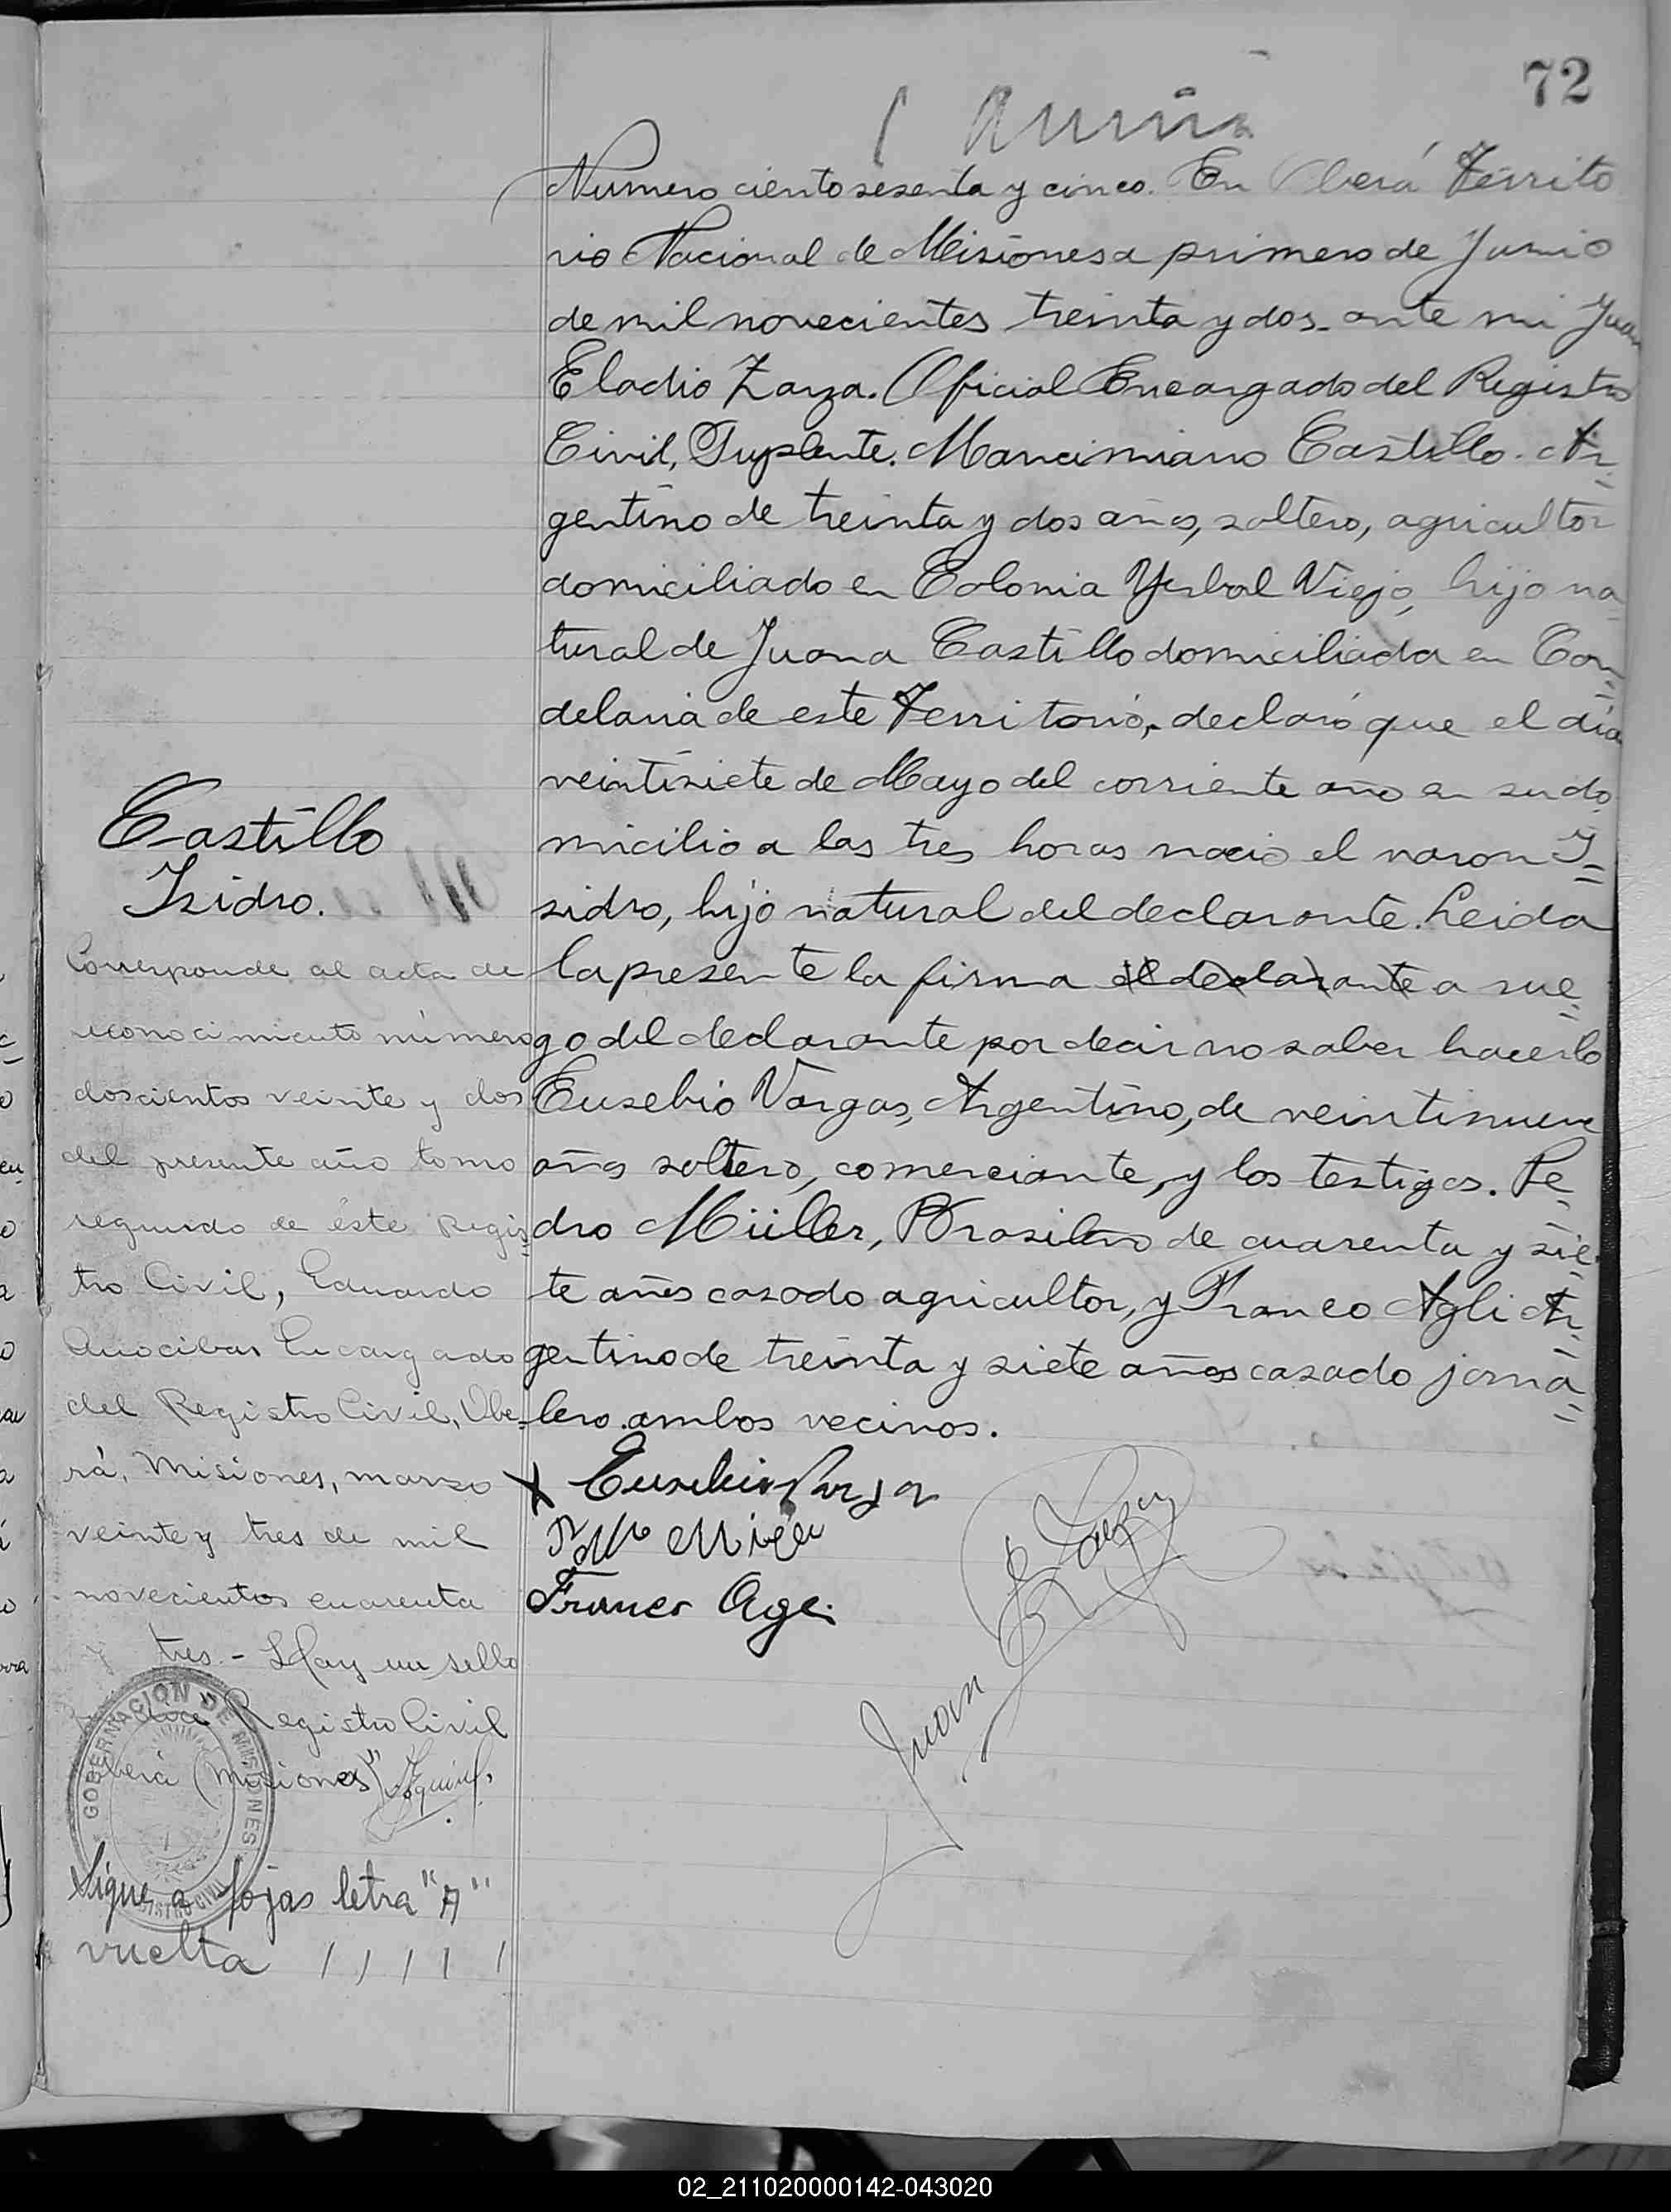 72
Numero ciento sesenta y cinco. En Oberá Territo
rio Nacional de Misiones a primero de Junio
de mil novecientes treinta y dos. ante mi Juan
Eladio Zarza. Oficial Encargado del Registro
Civil, Suplente. Marcimiano Castillo. Ar=
gentino de treinta y dos años, soltero, agricultor
domiciliado en Colonia Yerbal Viejo, hijo na=
tural de Juana Castillo domiciliada en Can=
delaria de este Territorio, declaró que el dia
veintisiete de Mayo del corriente año en su do
micilio a las tres horas nacio el varon I=
sidro, hijo natural del declarante. Leida
la presente la firma el declarante a rue=
go del declarante por decir no saber hacerlo
Eusebio Vargas, Argentino, de veintinueve
años soltero, comerciante, y los testigos. Pe=
dro Müller, Brasileño de cuarenta y sie=
te años casado agricultor, y Franco Agli Ar=
gentino de treinta y siete años casado jorna=
lero. ambos vecinos.
Castillo
Isidro.
Corresponde al acta de
reconocimiento número
doscientos veinte y dos
del presente año tomo
segundo de éste Regis=
tro Civil, Eduardo
Encargado
del Registro Civil, Obe=
rá, Misiones, marzo
veinte y tres de mil
novecientos cuarenta
y tres.- Hay un sello
que dice Registro Civil
Oberá (Misiones)"
GOBERNACION DE MISIONES
REGISTRO CIVIL
Sigue a fojas letra "A"
vuelta / / / / /
X Eusebio Vargas
Franco Agli
Juan E Zarza
02_211020000142-043020